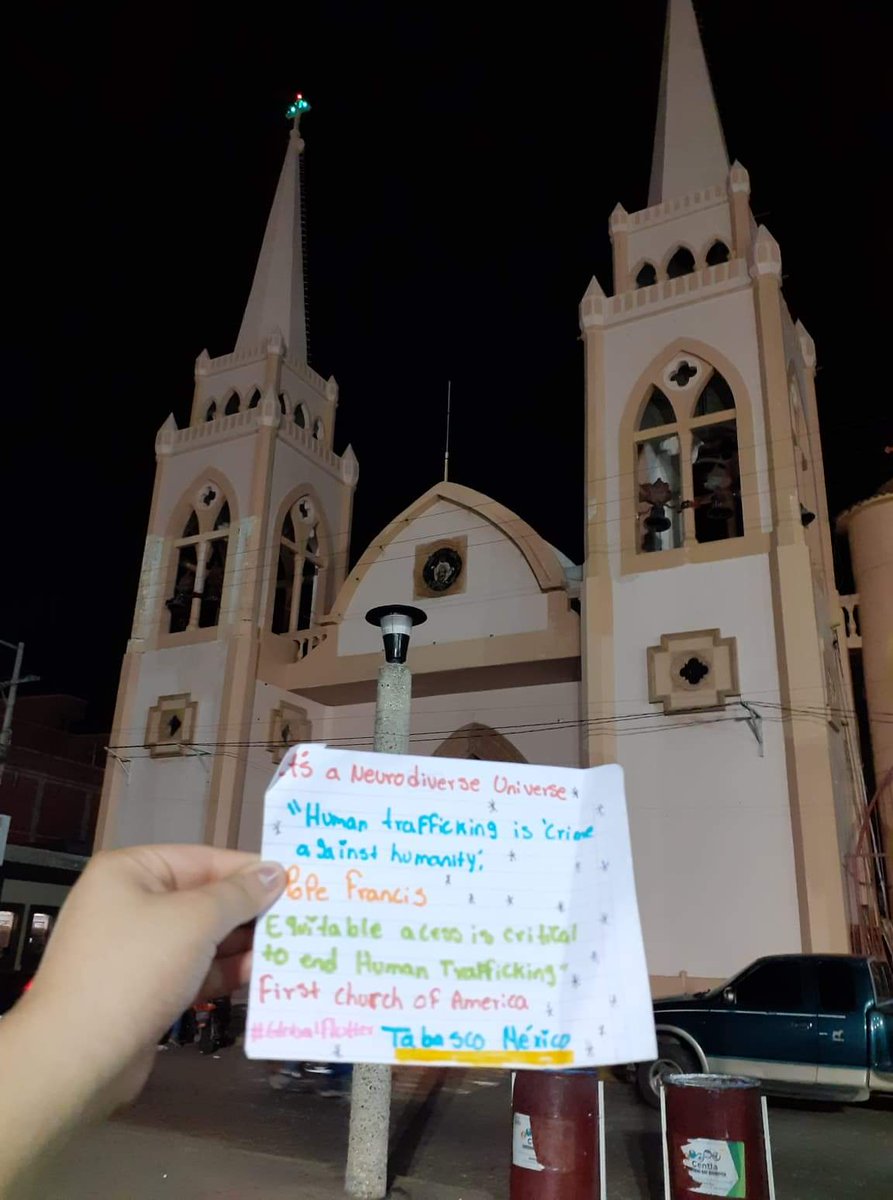 It's a Neurodiverse Universe
"Human trafficking is 'crime
against humanity',
Pope Francis
Equitable acess is critical
to end Human Trafficking"
First church of America
#GlobalFlotter Tabasco México
Centla